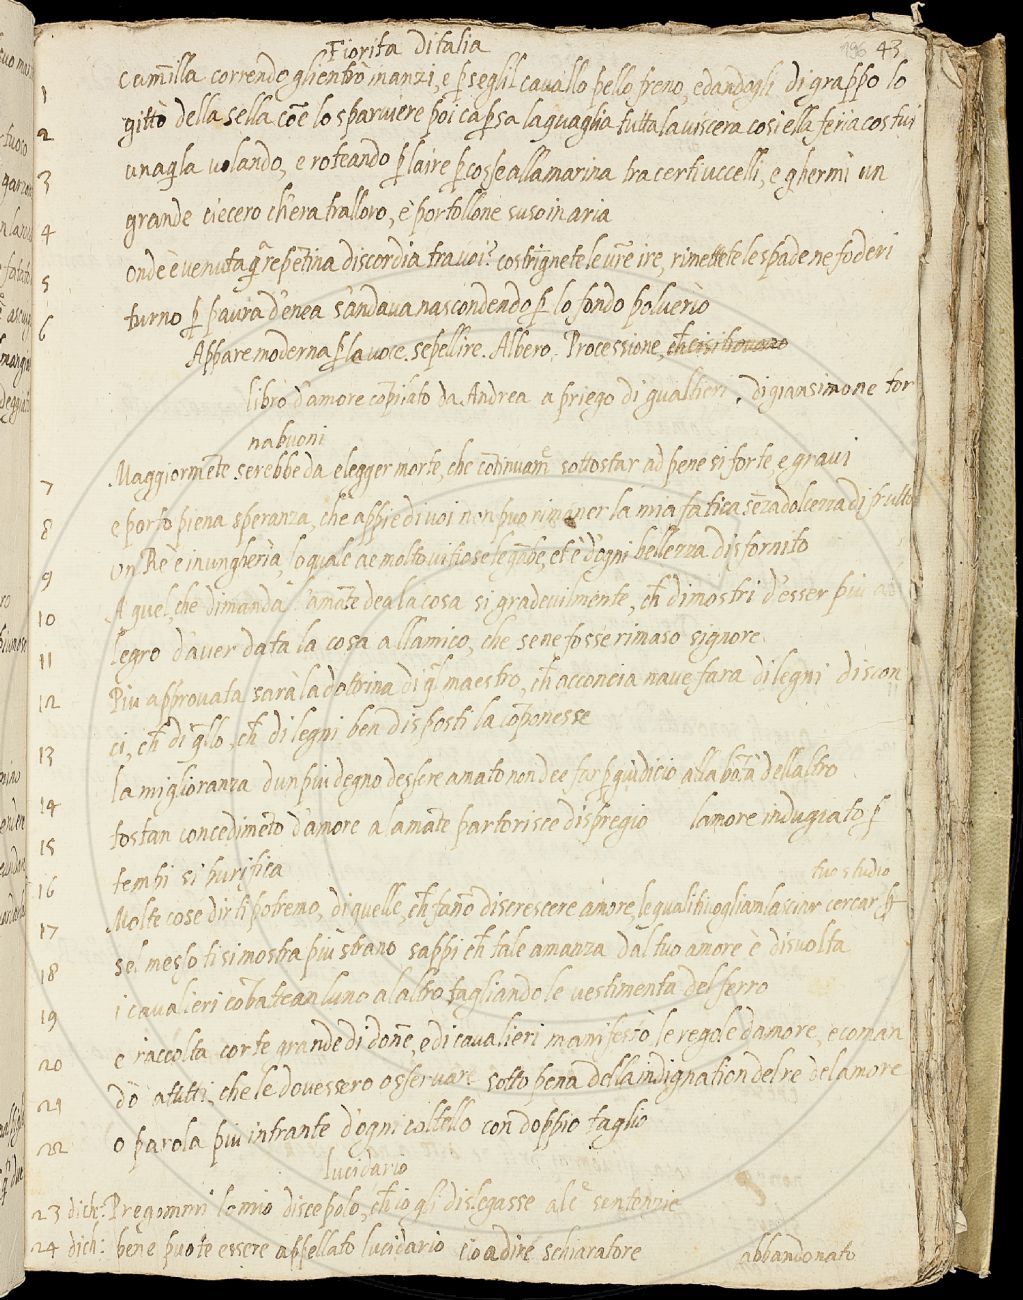 Fiorita ditalia
196 43
1 Camilla correndo gli entrò inanzi, e p̱se gl'il cavallo pello freno, e dandogli di grappo lo
2 gittò della sella cōe lo sparviere poi ca p̱sa la quaglia tutta la viscera così ella feria costui
3 un aq̄la volando, e roteando p̱ laire p̱cosse alla marina tra certi uccelli, e ghermì un
4 grande ciecero ch'era tralloro, e portollone suso in aria
5 onde è venuta q̄ repētina discordia tra voi? costrīgnete le vr̄e ire, rimettete le spade ne foderi
6 turno p̱ paura d'enea s'andava nascondendo p̱ lo fondo polverio
Appare moderna p̱ la voce. sepellire. Albero. Processione,
libro d'amore cōpilato da Andrea a priego di gualtieri. di giansimone tor
nabuoni
7 Maggiormēte serebbe da elegger morte, che cōtinuamē sottostar ad pene si forte e gravi
8 e porto piena speranza, che appie di voi non può rimaner la mia fatica sēza dolcezza di frutto
9 un Re è in ungheria, lo quale ae molto vitiose le gābe, et è d'ogni bellezza disfornito
10 A quel, che dimanda l'amāte dea la cosa si gradevilmente, ch̄ dimostri d'esser più al
11 legro d'aver data la cosa all'amico, che se ne fosse rimaso signore
12 Più approvata sarà la dotrina di q̄l maestro, ch̄ acconcia nave farà di legni discon
ci, ch̄ di q̄llo, ch̄ di legni ben disposti la cōponesse
13 la miglioranza dun più degno dessere amato non dee far p̱giudicio alla bōtà dellaltro
14 tostan concedimēto d'amore a lamāte partorisce dispregio lamore indugiato p̱
15 tempi si purifica
tuo studio
16 Molte cose dir ti potremo, di quelle, ch̄ fāno discrescere amore, le quali ti vogliam lasciar cercar p̱
17 se'l messo ti si mostra più strano sappi ch̄ tale amanza dal tuo amore è disvolta
18 i cavalieri cōbatean luno a laltro tagliando le vestimenta del ferro
19 e raccolta corte grande di dōne, e di cavalieri manifestò le regole d'amore, e coman
20 dò a tutti, che le dovessero osservare sotto pena della indignation del re del amore
21 o parola più intrante d'ogni coltello con doppio taglio
22 lucidario
23 dich: Pregommi lo mio discepolo, ch̄ io gli dislegasse alc̄ sentenzie
24 dich: bene puote essere appellato lucidario cio a dire schiaratore abbandonato